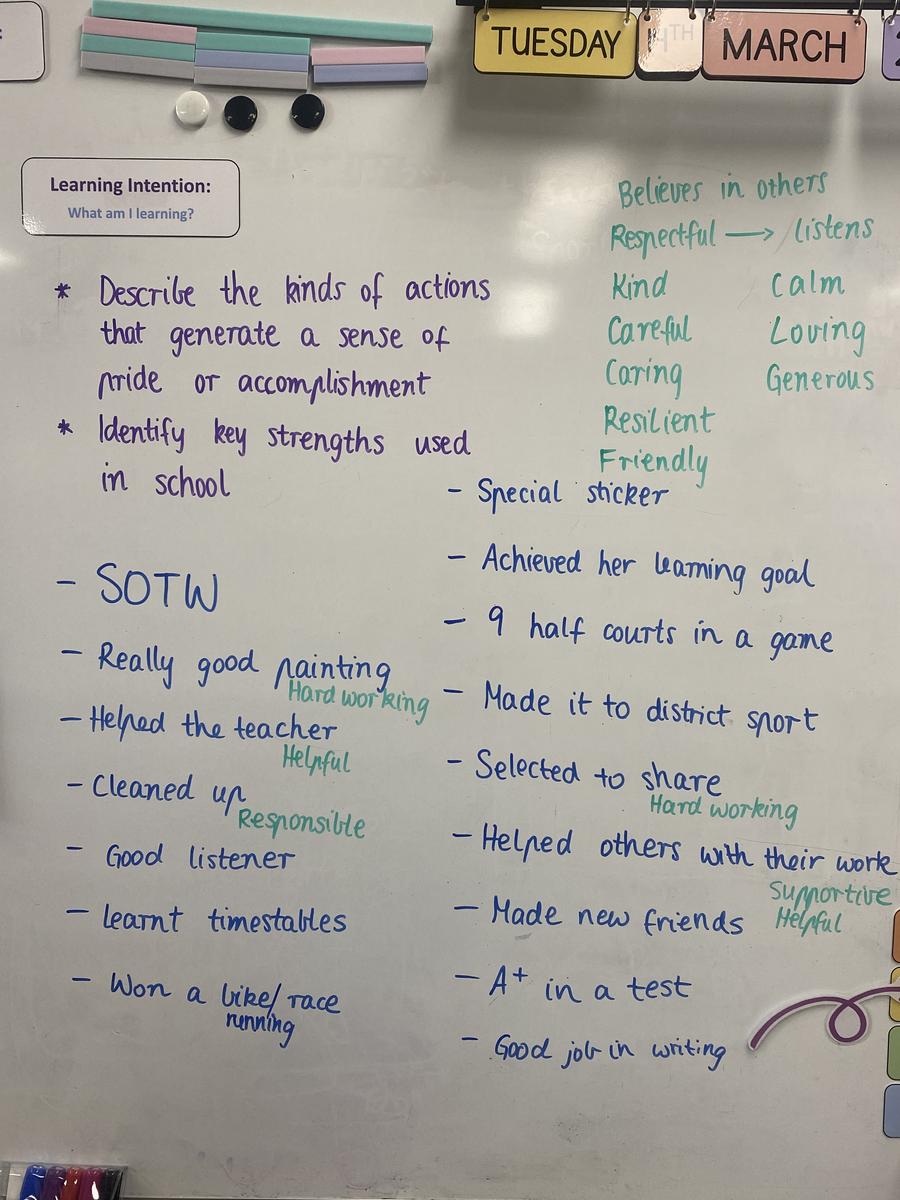 TUESDAY 14TH MARCH
Learning Intention:
What am I learning?
* Describe the kinds of actions
that generate a sense of
pride or accomplishment
* Identify key strengths used
in school
Believes in others
Respectful → listens
Kind Calm
Careful Loving
Caring Generous
Resilient
Friendly
- SOTW
- Really good painting
Hard working
- Helped the teacher
Helpful
- Cleaned up
Responsible
- Good listener
- learnt timestables
- Won a bike/race
running
- Special sticker
- Achieved her learning goal
- 9 half courts in a game
- Made it to district sport
- Selected to share
Hard working
- Helped others with their work
Supportive
- Made new friends Helpful
- A+ in a test
- Good job in writing